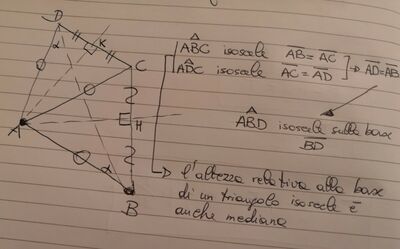 D
α
K
C
A
H
α
B
AB̂C isoscele A̅B̅ = A̅C̅
AD̂C isoscele A̅C̅ = A̅D̅ → A̅D̅ = A̅B̅
AB̂D isoscele sulla base
B̅D̅
l'altezza relativa alla base
di un triangolo isoscele è
anche mediana